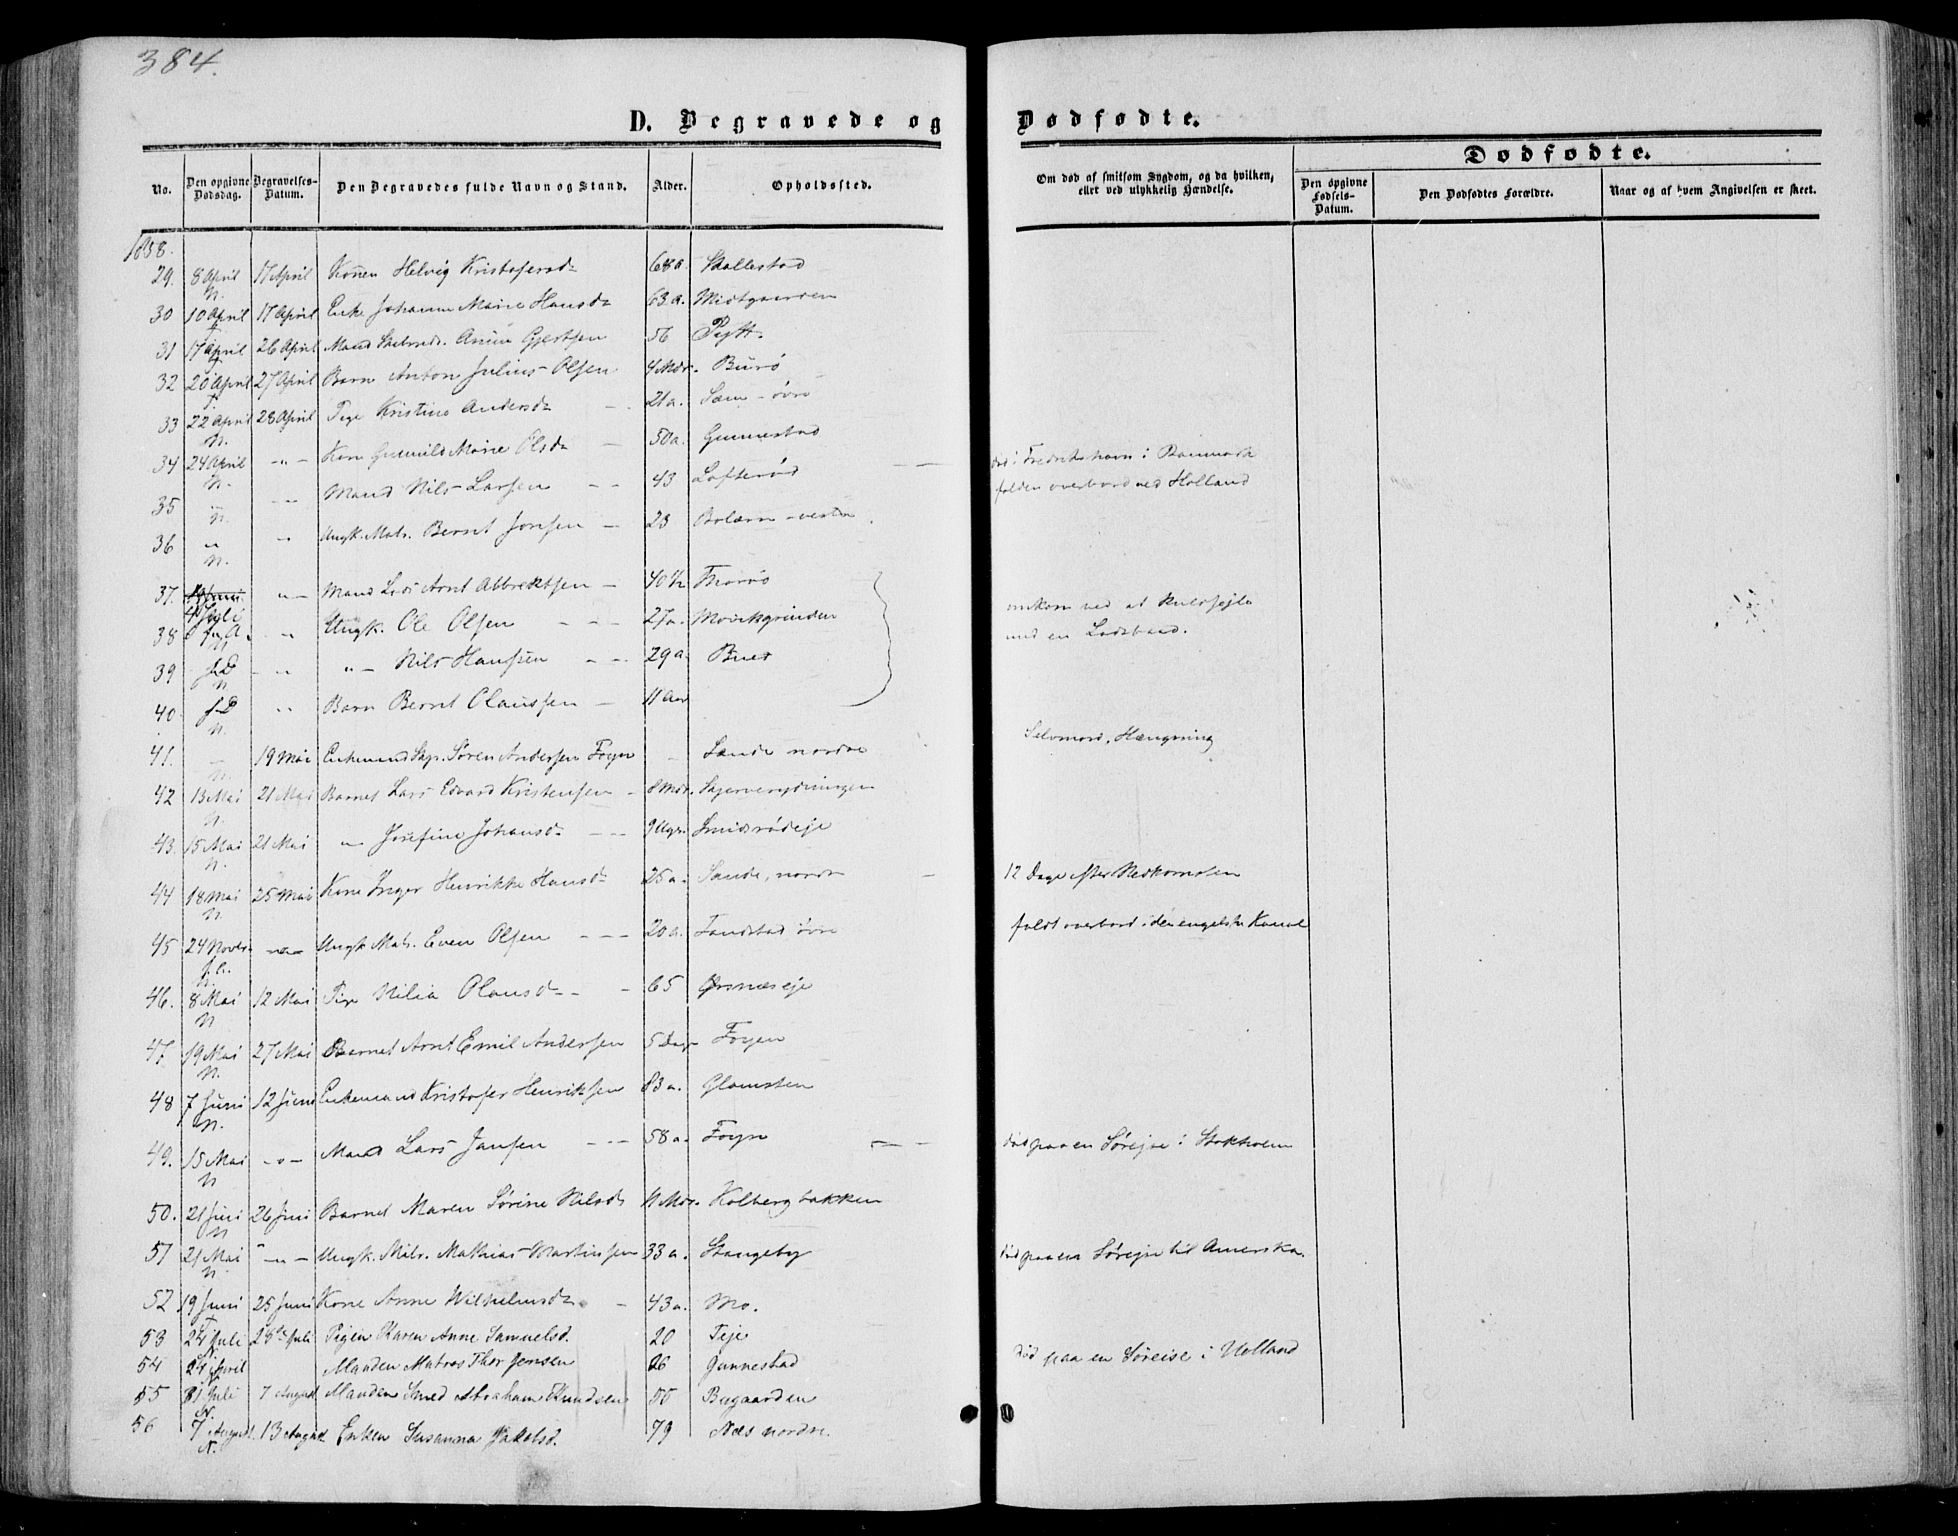 384.
D. Begravede og Dødfødte.
No. Den opgivne Dødsdag. Begravelses-Datum. Den Begravedes fulde Navn og Stand. Alder. Opholdssted. Om død af smitsom Sygdom, og da hvilken, eller ved ulykkelig Hændelse. Dødfødte. Den opgivne Fødsels-Datum. Den Dødfødtes Forældre. Naar og af hvem Angivelsen er skeet.
1858.
29. 8 April 17 April Konen Helvig Kristofersd. 68 a. Skallestad
n.
30 10 April 17 April Enke Johanne Marie Hansd. 63 a. Midtgaarden
31 17 April 26 April Mand Gjertsen 56 Pytt.
32 20 April 27 April Barn Anton Julius Olsen 4 Mdr. Burø
33 22 April 28 April Pige Kristine Andersd. 21 a. Sæm øvre
n.
34 24 April -"- Kone Gunnild Marie Olsd. 50 a. Gunnestad
n.
35 " -"- Mand Nils Larsen 43 Lofterød død i Fredrikshavn i Danmark
n.
36 " " Ungk. Matr. Bernt 23 Bolærn vestre falden overbord ved Holland
n.
37. 4 Juli -"- Mand Lods Arnt Albrektsen 40 ½ Thorøs
38 " Ungk. Ole Olsen 27 a. omkom ved at kuldsejle
39 " " Nils Hansen 29 a. Buer med en Lodsbaad.
n.
40 " Barn Bernt Olaussen 11 Aar
n.
41. 19 Mai Enkemand Skp. Søren Andersen Foyn Sande nordre Selvmord, Hængning
n.
42 13 Mai 21 Mai Barnet Lars Edvard Kristensen 8 Mdr.
n.
43. 15 Mai 21 Mai " Josefine Johansd. 9 Uger Smidsrødeje
n.
44 18 Mai 25 Mai Kone Inger Henrikke Hansd. 25 a. Sande, nordre 12 Dage efter Nedkomsten
n.
45 24 Novbr. -"- Ungk. Matr. Even Olsen 20 a. Tandstad øvre faldt overbord i den engelske Kanal
n.
46. 8 Mai 12 Mai Pige Nilia Olausd. 65 Ørsnæseje
n.
47. 19 Mai 27 Mai Barnet Arnt Emil Andersen 5 Dage Foyen
n.
48 7 Juni 12 Juni Enkemand Kristofer Henriksen 83 a. Glomsten
n.
49. 15 Mai -"- Mand Lars Jansen 58 a. Foyn død paa en Sørejse i Stokholm
n
50. 21 Juni 26 Juni Barnet Maren Sørine Nilsd. 11 Mdr. Kolbergbakken
n
51 21 Mai -"- Ungk. Matr. Mathias Martinsen 33 a. Stangeby død paa en Sørejse til Amerika.
n.
52 19 Juni 25 Juni Kone Anne Wilhelmsd. 43 a. Mo.
53 24 Juli 28de Juli Pigen Karen Anne Samuelsd. 20 Teje
54 24 April Manden Matros Thor Jensen 26 Gunnestad død paa en Søreise i Holland
55 31 Juli 7 August Manden Smed Abraham Knudsen 55 Bygaarden
N.
56 7 August 13 August Enken Susanna Jakobsd. 79 Næs nordre.
N.